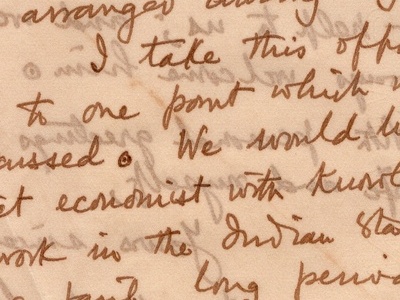 arranged
I take this oppo
to one point which
cussed. We would li
et economist with knowl
work in the Indian Sta
long perio